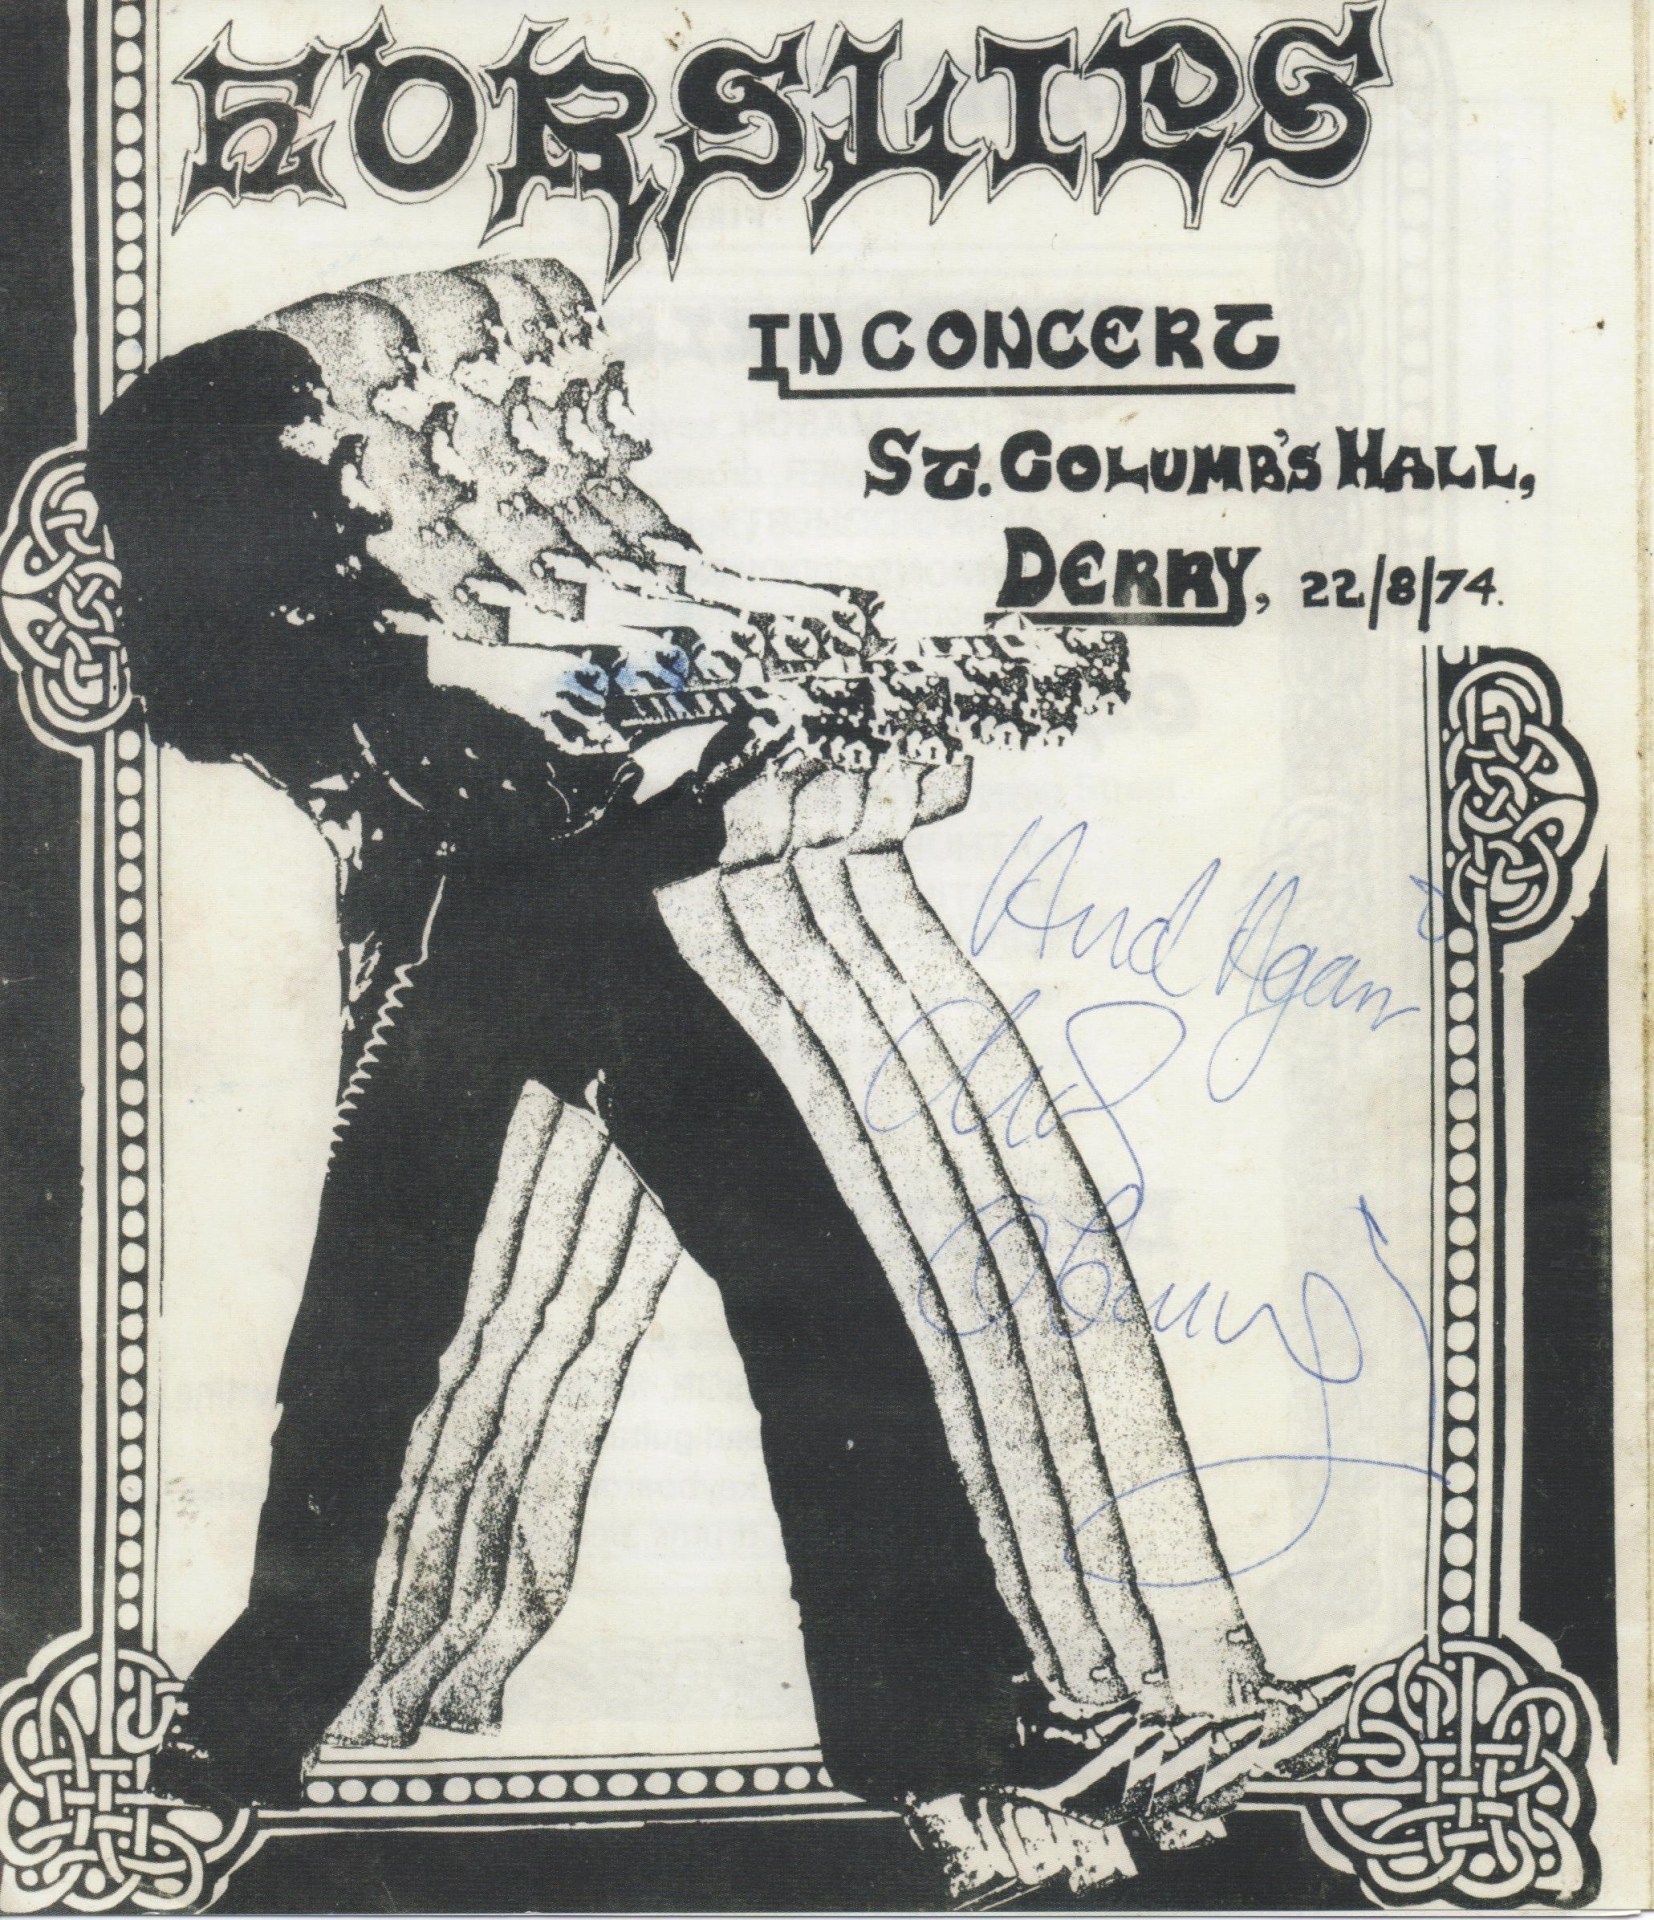 HORSLIPS
IN CONCERT
ST. COLUMB'S HALL,
DERRY, 22/8/74.
And Again